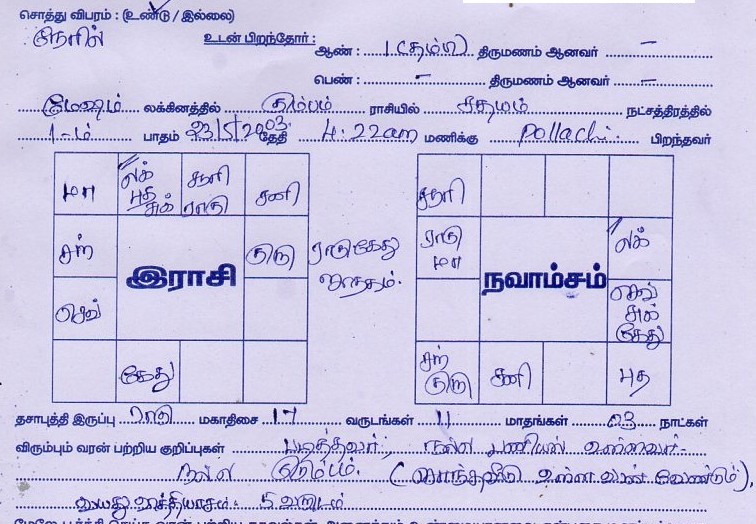 சொத்து விபரம் : (உண்டு / இல்லை)
உடன் பிறந்தோர் :
ஆண் : 1 (தம்பி) திருமணம் ஆனவர் –
பெண் : - திருமணம் ஆனவர் –
மேஷம் லக்கினத்தில் கும்பம் ராசியில் சதயம் நட்சத்திரத்தில்
1-ம் பாதம் 23/5/2003 தேதி 4:22am மணிக்கு Pollachi பிறந்தவர்
மா லக் சூரி சனி
புத ராகு
சுக்
சந் குரு
இராசி
செவ்
கேது
ராகு கேது
ஜாதகம்.
சூரி
ராகு லக்
மா
நவாம்சம்
செவ்
சுக்
கேது
சந் சனி புத
குரு
தசாபுத்தி இருப்பு ராகு மகாதிசை 17 வருடங்கள் 11 மாதங்கள் 03 நாட்கள்
விரும்பும் வரன் பற்றிய குறிப்புகள் படித்தவர், நல்ல பணியில் உள்ளவர்-
நல்ல குடும்பம். (சொந்தவீடு உள்ள வரன் வேண்டும்),
வயது வித்தியாசம் - 5 வருடம்